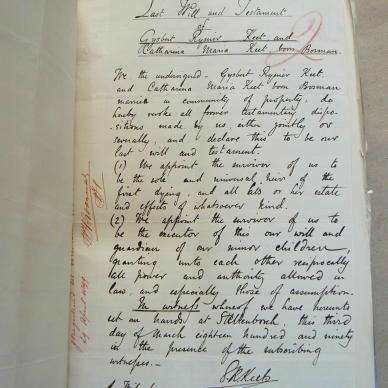 Last Will and Testament
of
Gysbert Rymer Keet and
Catharina Maria Keet born Bosman.
2
We the undersigned - Gysbert Rymer Keet
and Catharina Maria Keet born Bosman
married in community of property, do
hereby revoke all former testamentary dispo-
sitions made by us either jointly or
severally, and declare this to be our
last will and testament.
(1) We appoint the survivor of us to
be the sole and universal heir of the
first dying, and all his or her estate
and effects of whatsoever kind.
(2) We appoint the survivor of us to
be the executor of this our will and
guardian of our minor children,
granting unto each other reciprocally
all power and authority allowed in
law, and especially those of assumption.
In witness whereof we have hereunto
set our hands at Stellenbosch, this third
day of March eighteen hundred and ninety
in the presence of the subscribing
witnesses.-
GRKeet
April